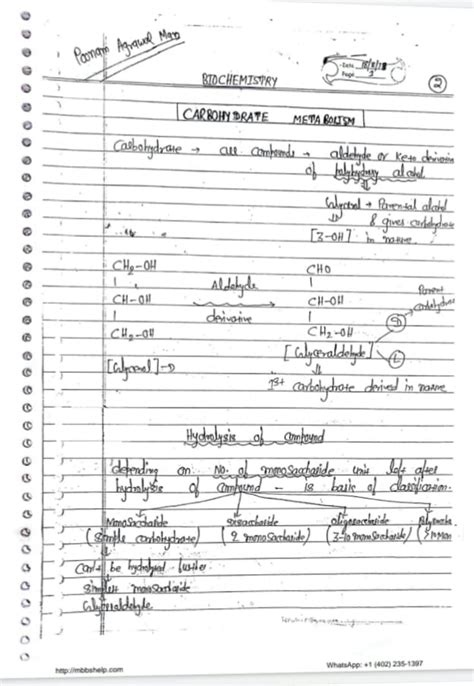 Poonam Agrawal Mam
Date 18/8/18
Page 2
BIOCHEMISTRY
2
CARBOHYDRATE METABOLISM
Carbohydrate → all compounds → aldehyde or keto derivative
of polyhydroxy alcohol
Glycerol → Parental alcohol
& gives carbohydrate
[3-OH] in nature
CH₂-OH CHO
CH-OH Aldehyde CH-OH
derivative
CH₂-OH CH₂-OH
Parent
carbohydrate
D
[Glycerol] [Glyceraldehyde] L
1st carbohydrate derived in nature
Hydrolysis of compound
depending on No. of monosaccharide unit left after
hydrolysis of compound - is basis of classification.
Monosaccharide Disaccharide Oligosaccharide
(Simple carbohydrate) (2 monosaccharide) (3-10 monosaccharide)
Can't be hydrolysed further
Simplest monosaccharide
Glyceraldehyde
http://mbbshelp.com
WhatsApp: +1 (402) 235-1397